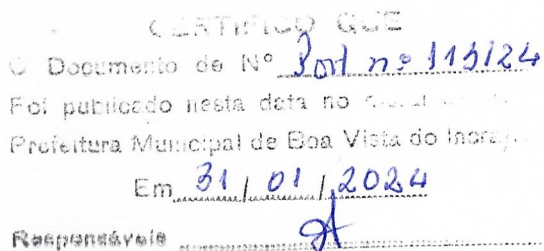 CERTIFICO QUE
O Documento de Nº Port nº 113/24
Foi publicado nesta data no
Prefeitura Municipal de Boa Vista do Incra
Em 31 / 01 / 2024
Responsáveis